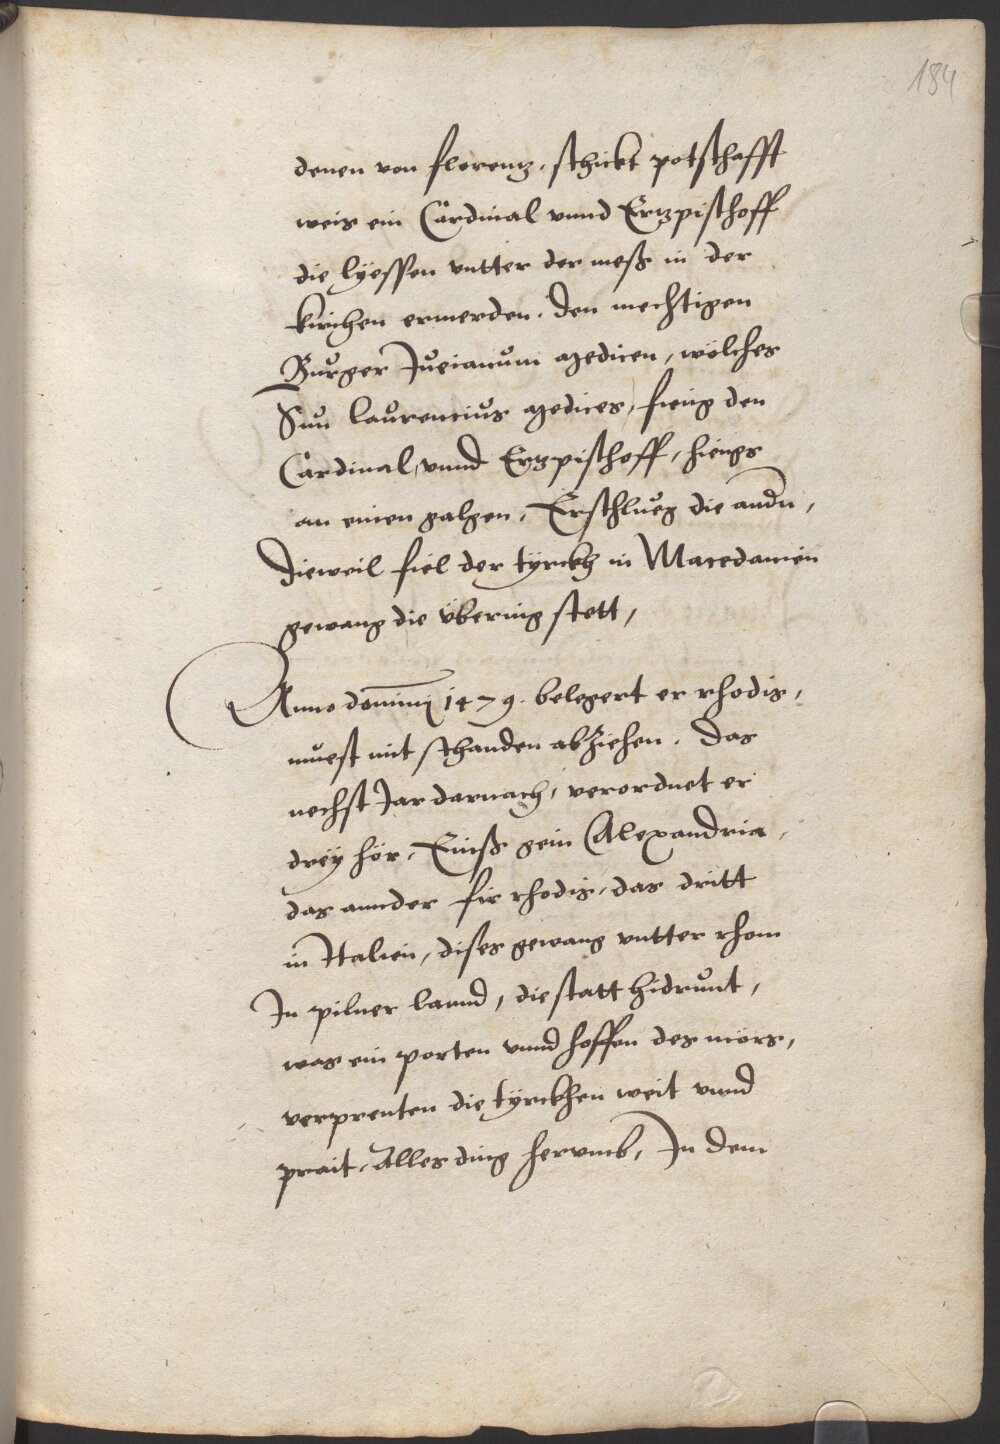 184
denen von florentz, schickt potschafft
weis ein Cardinal vnnd Ertzpischoff
die lyessen vntter der meß in der
kirchen ermerden. Den mechtigen
Burger Jueianum medicen, wölches
Sun laurencius medices, fieng den
Cardinal, vnnd Ertzpischoff, hiengs
an einen galgen, Erschlueg die andn,
Dieweil fiel der tyrckh in Macedanien
gewang die vbering stett,
Anno domini 1479. belegert er rhodis,
muest mit schanden abziehen. Das
nechst Jar darnach, verordnet er
drey hör, Einß gein Alexandria,
das annder fir rhodis, das dritt
in Italien, dises gewang vntter rhom
In pilner lannd, die statt hidrunt,
was ein porten vnnd hoffen des mörs,
verprenten die tyrckhen weit vnnd
prait, Alles ding herumb, In dem